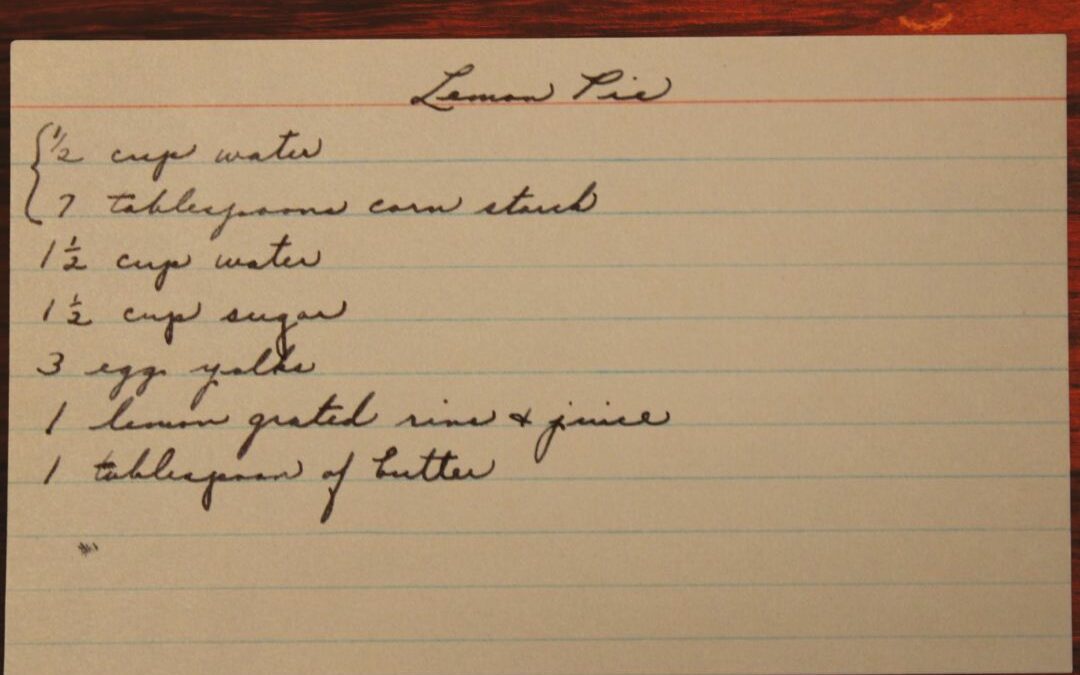 Lemon Pie
{ 1/2 cup water
{ 7 tablespoons corn starch
1 1/2 cup water
1 1/2 cup sugar
3 egg yolks
1 lemon grated rine & juice
1 tablespoon of butter